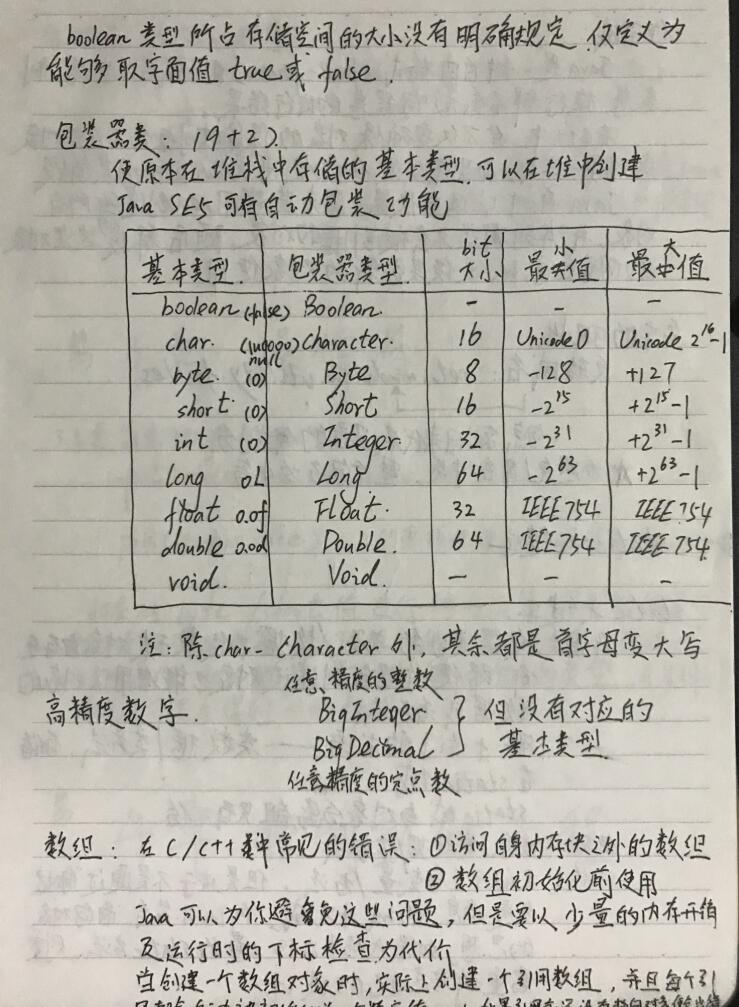 boolean 类型所占存储空间的大小没有明确规定，仅定义为
能够取字面值 true 或 false.
包装器类：(9+2)
使原本在堆栈中存储的基本类型，可以在堆中创建
Java SE5 可有自动包装功能
基本类型. 包装器类型. bit 大小 最小值 最大值
boolean (false) Boolean. - - -
char. (\u0000) null Character. 16 Unicode 0 Unicode 2^16-1
byte. (0) Byte 8 -128 +127
short. (0) Short 16 -2^15 +2^15-1
int (0) Integer. 32 -2^31 +2^31-1
long 0L Long 64 -2^63 +2^63-1
float 0.0f Float. 32 IEEE754 IEEE754
double 0.0d Double. 64 IEEE754 IEEE754
void. Void. - - -
注：除 char- Character 外，其余都是首字母变大写
任意精度的整数
高精度数字. BigInteger } 但没有对应的
BigDecimal 基本类型
任意精度的定点数
数组：在 C/C++ 中常见的错误：①访问自身内存块之外的数组
②数组初始化前使用
Java 可以为你避免这些问题，但是要以少量的内存开销
及运行时的下标检查为代价
当创建一个数组对象时，实际上创建一个引用数组，并且每个引